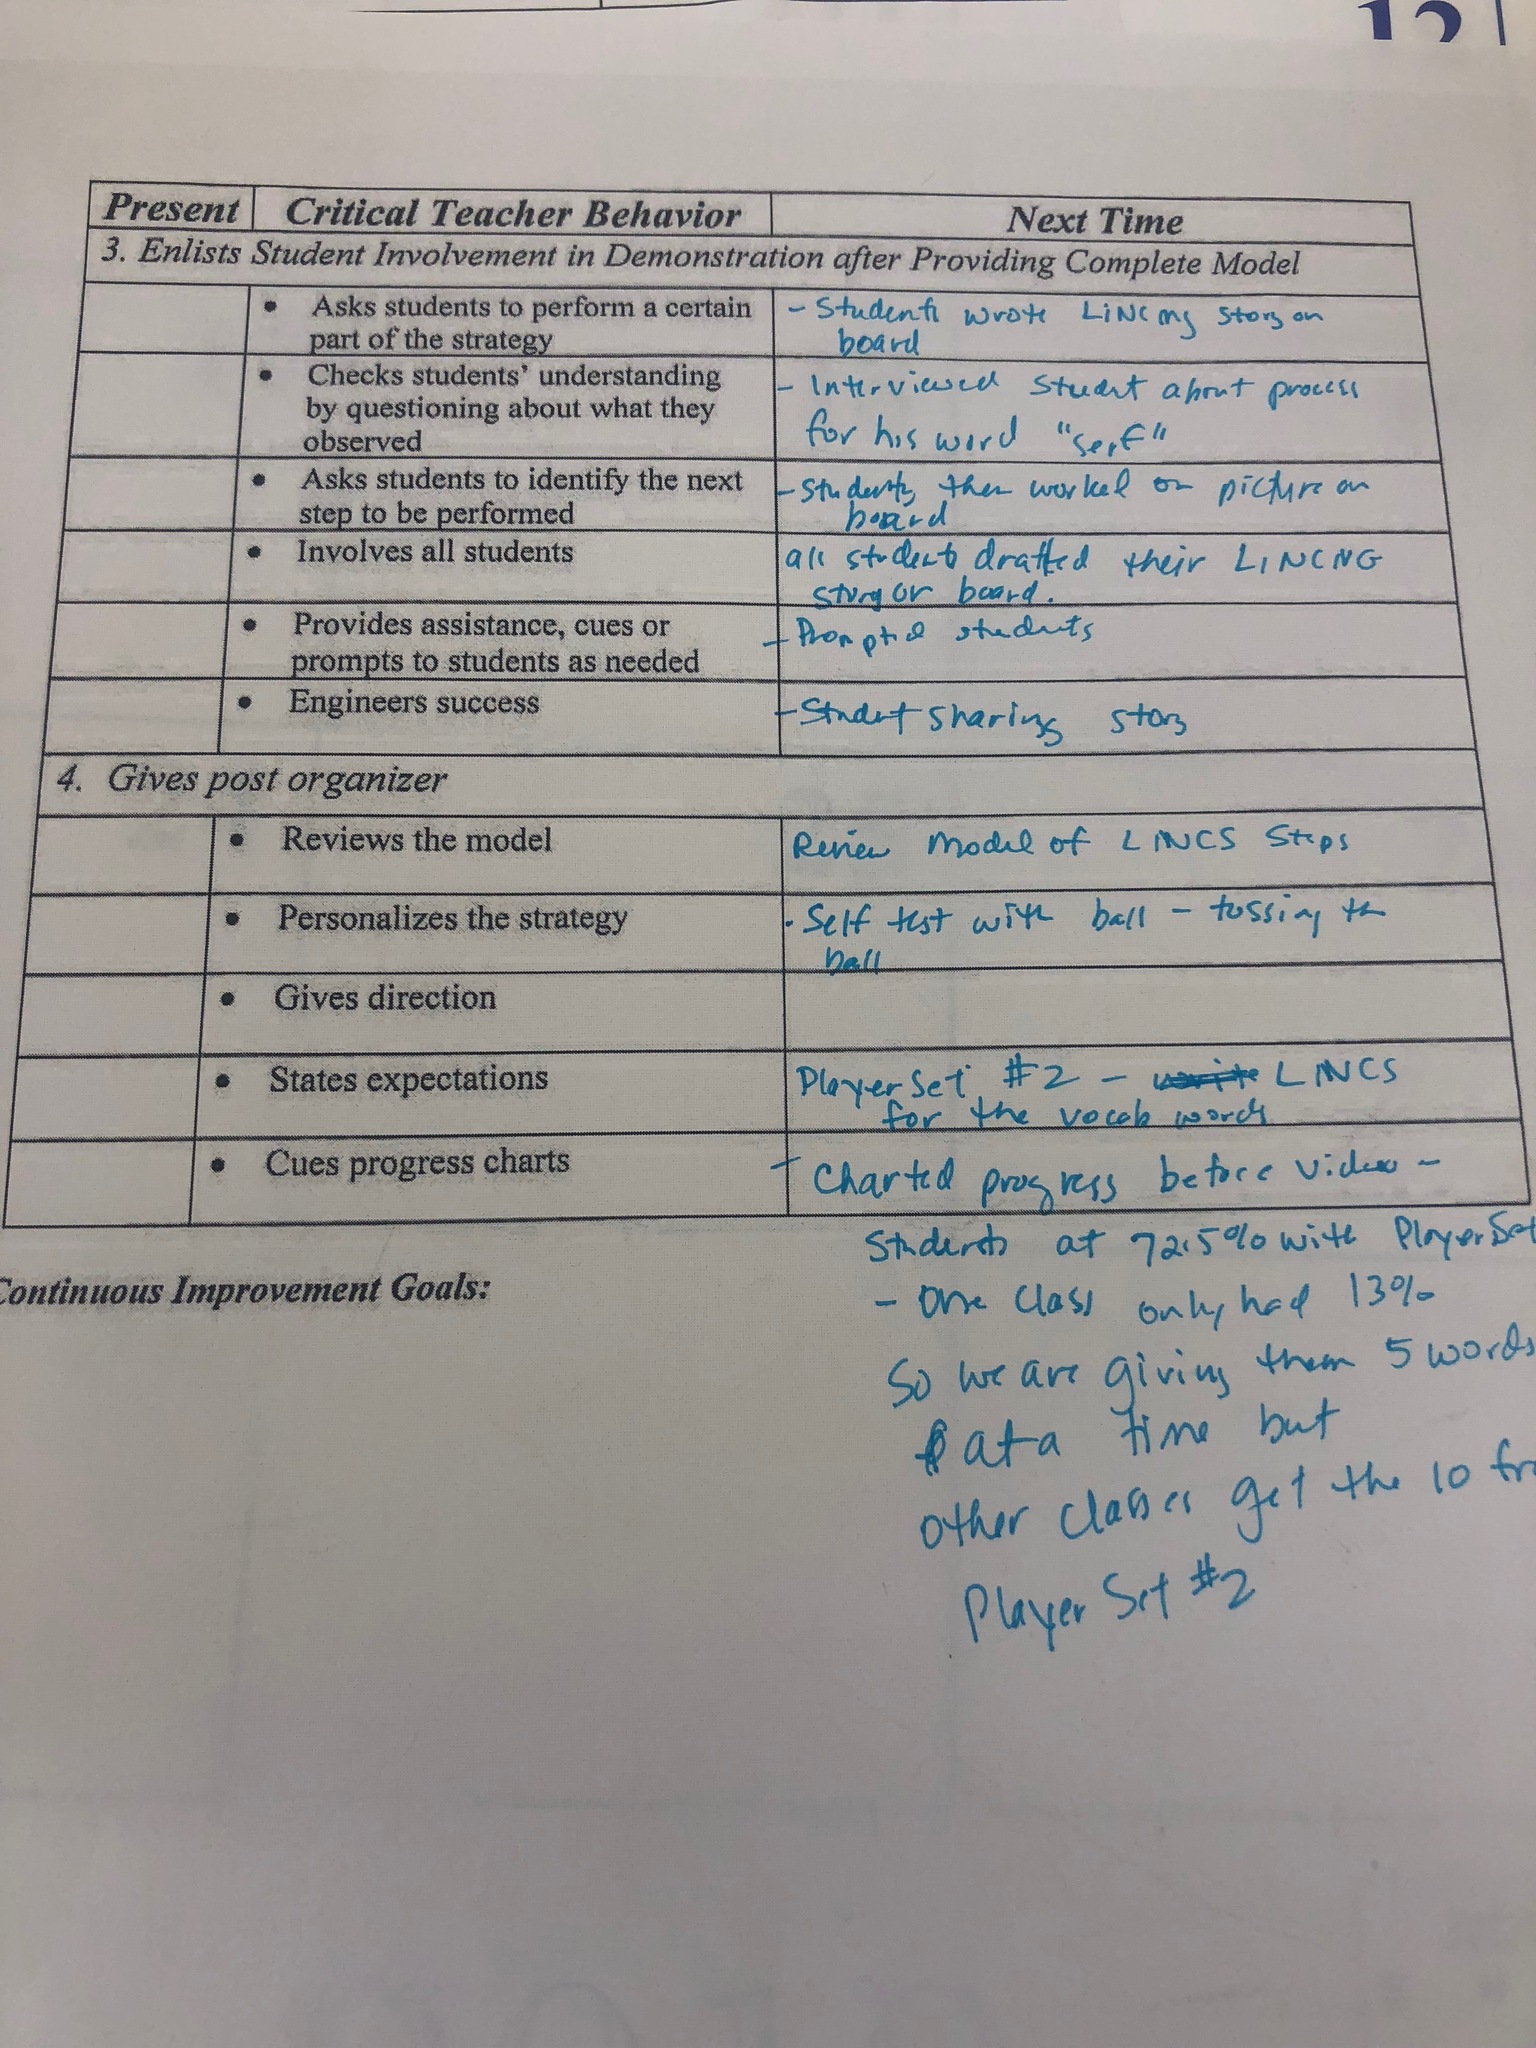 12
Present Critical Teacher Behavior Next Time
3. Enlists Student Involvement in Demonstration after Providing Complete Model
• Asks students to perform a certain
part of the strategy
- Students wrote LINCing story on
board
• Checks students' understanding
by questioning about what they
observed
- Interviewed student about process
for his word "serf"
• Asks students to identify the next
step to be performed
- Students then worked on picture on
board
• Involves all students
all students drafted their LINCNG
story or board.
• Provides assistance, cues or
prompts to students as needed
- Prompted students
• Engineers success
- Student sharing story
4. Gives post organizer
• Reviews the model
Review Model of LINCS Steps
• Personalizes the strategy
· Self test with ball - tossing the
ball
• Gives direction
• States expectations
Player Set #2 - LINCS
for the vocab words
• Cues progress charts
- Charted progress before video -
Students at 72.5% with Player Set
Continuous Improvement Goals:
- One class only had 13%
So we are giving them 5 words
at a time but
other classes get the 10
Player Set #2